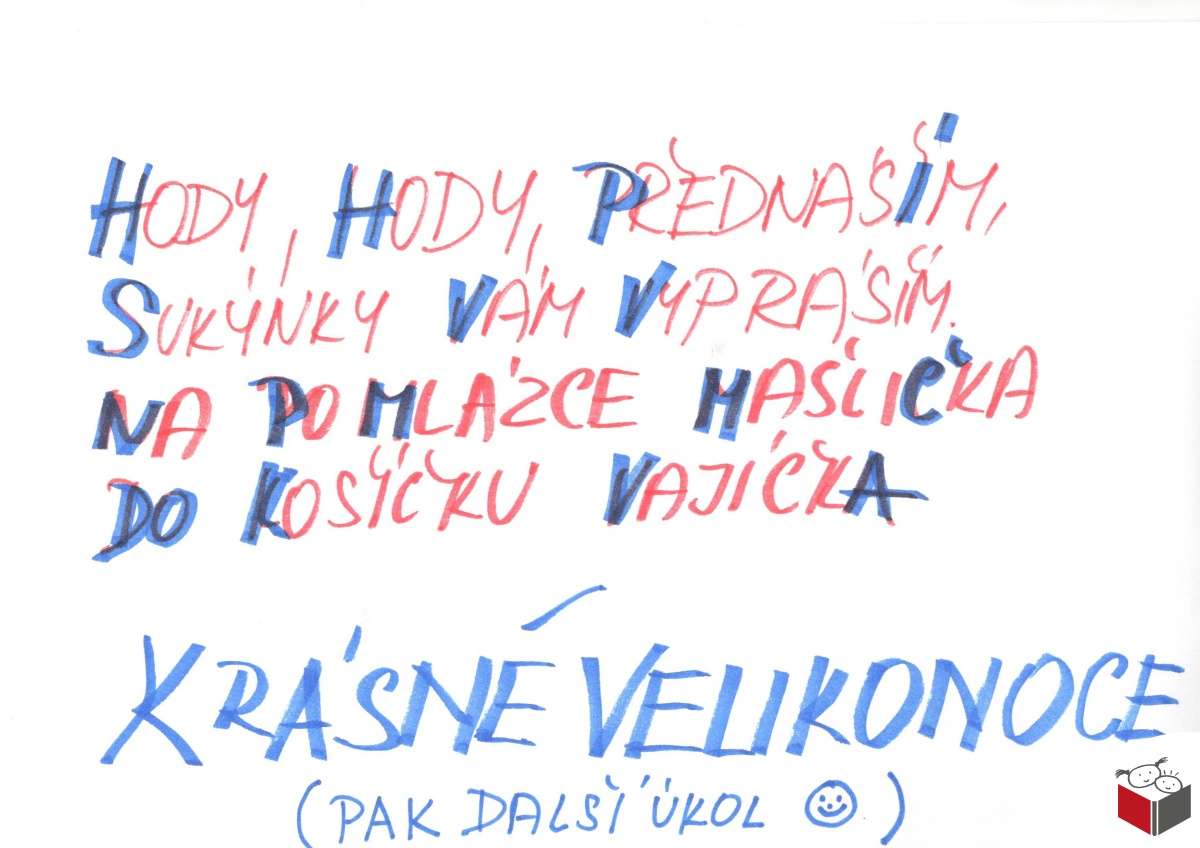 HODY, HODY, PŘEDNÁŠÍM,
SUKÝNKY VÁM VYPRÁŠÍM.
NA POMLÁZCE MAŠLIČKA
DO KOŠÍČKU VAJÍČKA
KRÁSNÉ VELIKONOCE
(PAK DALŠÍ ÚKOL ☺)